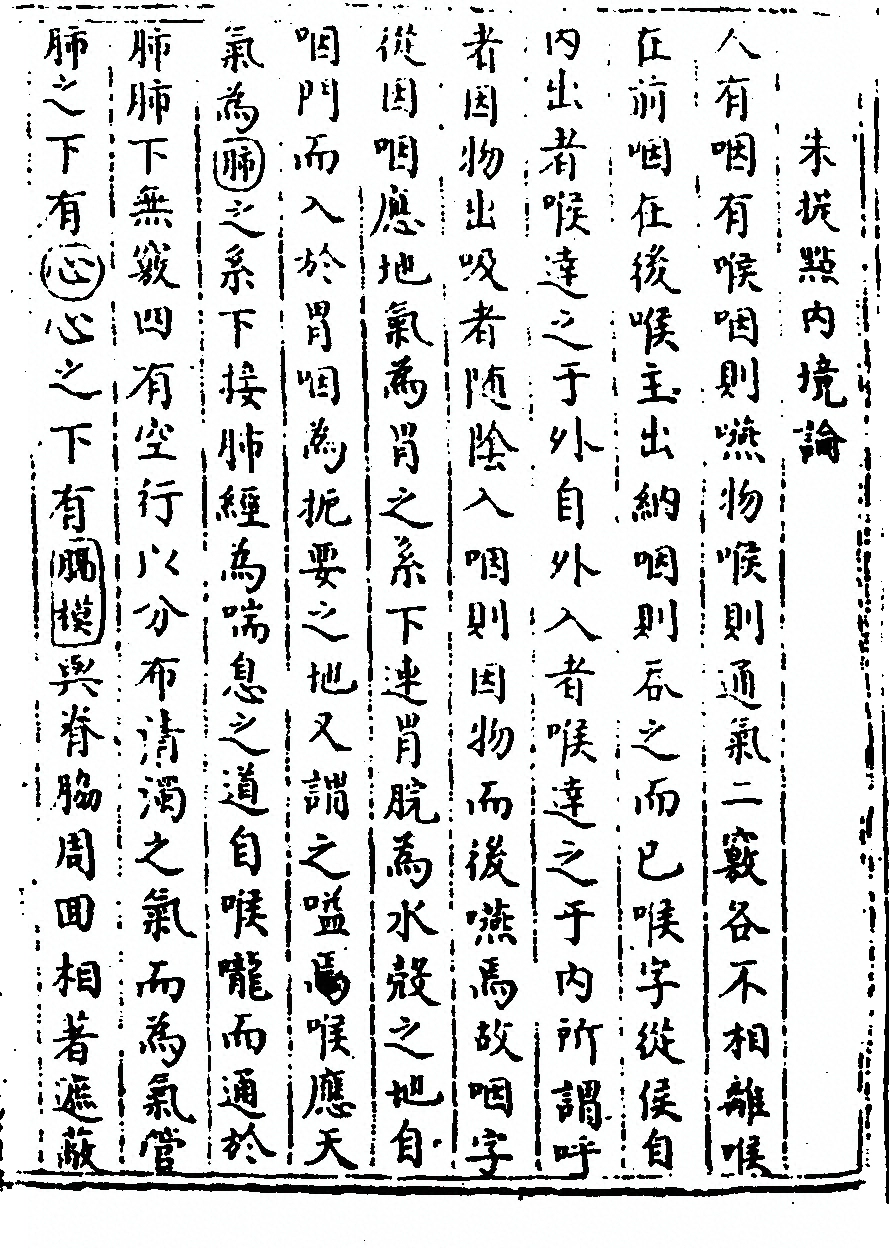 朱提點內境論
人有咽有喉咽則嚥物喉則通氣二竅各不相離喉
在前咽在後喉主出納咽則吞之而已喉字從侯自
內出者喉達之于外自外入者喉達之于內所謂呼
者因物出吸者随陰入咽則因物而後嚥焉故咽字
從因咽應地氣為胃之系下連胃脘為水殼之地自
咽門而入於胃咽為扼要之地又謂之嗌焉喉應天
氣為肺之系下接肺經為喘息之道自喉嚨而通於
肺肺下無竅四有空行以分布清濁之氣而為氣管
肺之下有心心之下有膈模與脊脇周囬相著遮蔽